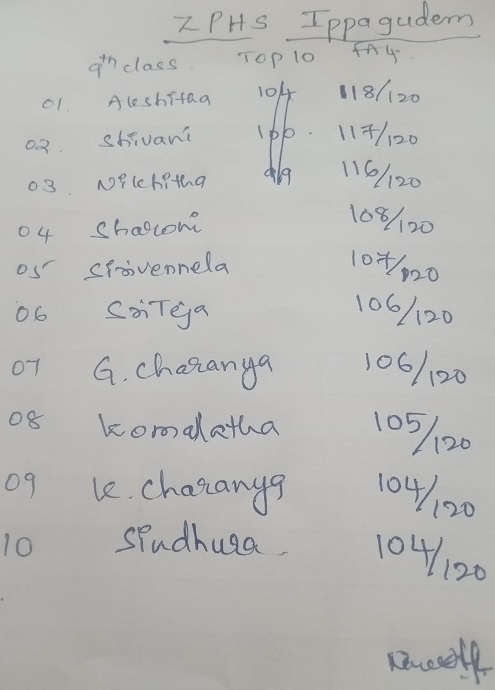 ZPHS Ippagudem
9th class TOP 10 FA4
01. Akshitha 104 118/120
02. Shivani 100 117/120
03. Nikhitha 99 116/120
04 Sharoni 108/120
05 Sirivennela 107/120
06 SriTeja 106/120
07 G. Charanya 106/120
08 Komalatha 105/120
09 K. Charanya 104/120
10 Sindhura 104/120